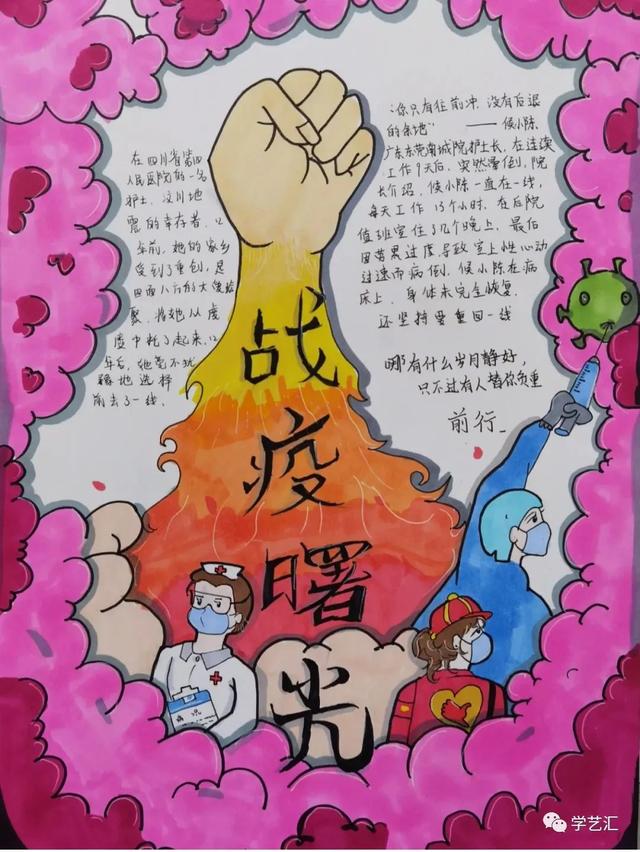 战
疫
曙
光
在四川省第四
人民医院的一名
护士，汶川地
震的幸存者。12
年前，她的家乡
受到了重创，是
四面八方的大爱凝
聚，将她从废
墟中托了起来，12
年后，她毫不犹
豫地选择
前去了一线。
“你只有往前冲，没有后退
的余地”——侯小陈
广东东莞南城院护士长，在连续
工作9天后，突然晕倒，院
长介绍，侯小陈一直在一线，
每天工作13个小时，在后院
值班室住了几个晚上，最后
因劳累过度导致室上性心动
过速而病倒，侯小陈在病
床上，身体未完全恢复，
还坚持要重回一线
哪有什么岁月静好，
只不过有人替你负重
前行_
学艺汇